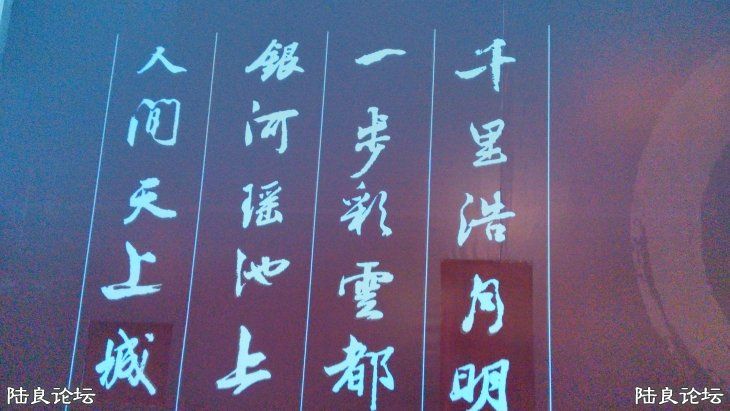 千里浩月明
一步彩雲都
銀河瑶池上
人间天上城
陆良论坛
陆良论坛